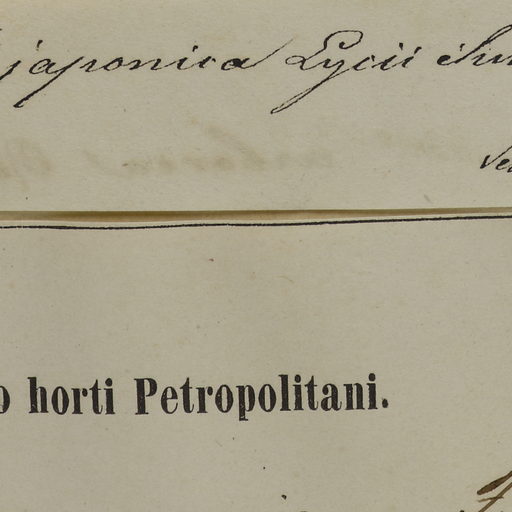 japonica Lycii
o horti Petropolitani.